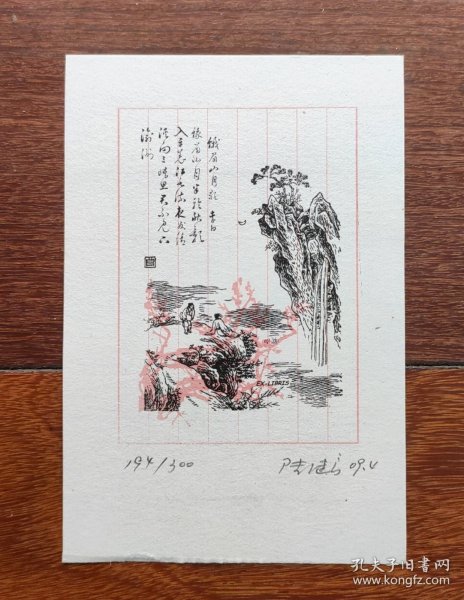 峨眉山月歌 李白
峨眉山月半輪秋影
入平羌江水流夜發清
溪向三峽思君不見下
渝州
EX-LIBRIS
194/300
09.4
孔夫子旧书网
www.kongfz.com